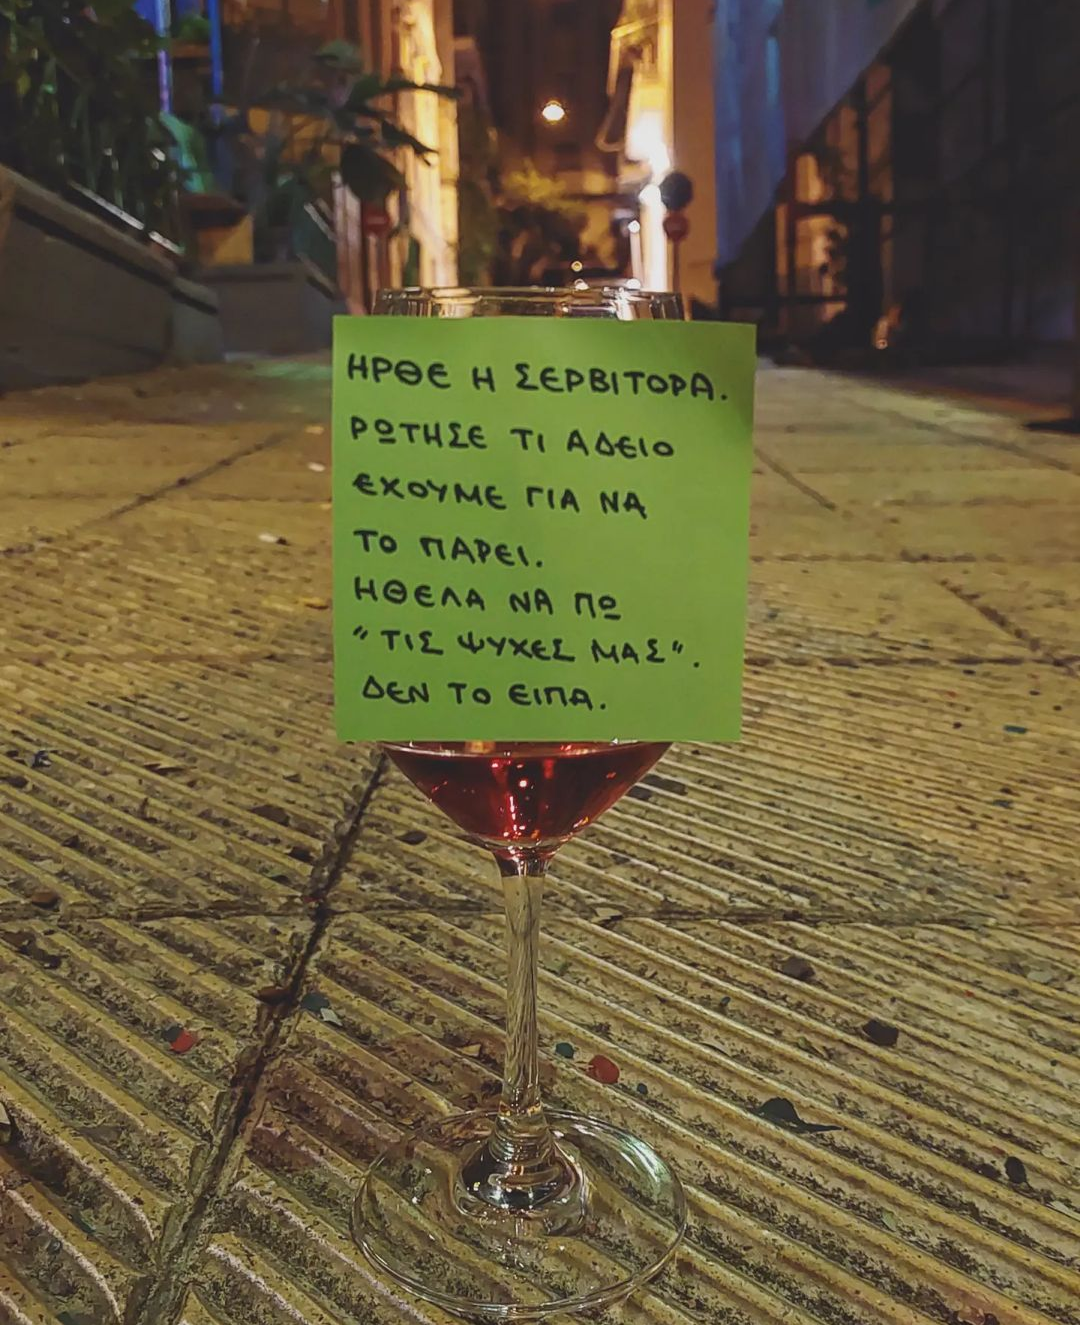 ΗΡΘΕ Η ΣΕΡΒΙΤΟΡΑ.
ΡΩΤΗΣΕ ΤΙ ΑΔΕΙΟ
ΕΧΟΥΜΕ ΓΙΑ ΝΑ
ΤΟ ΠΑΡΕΙ.
ΗΘΕΛΑ ΝΑ ΠΩ
"ΤΙΣ ΨΥΧΕΣ ΜΑΣ".
ΔΕΝ ΤΟ ΕΙΠΑ.